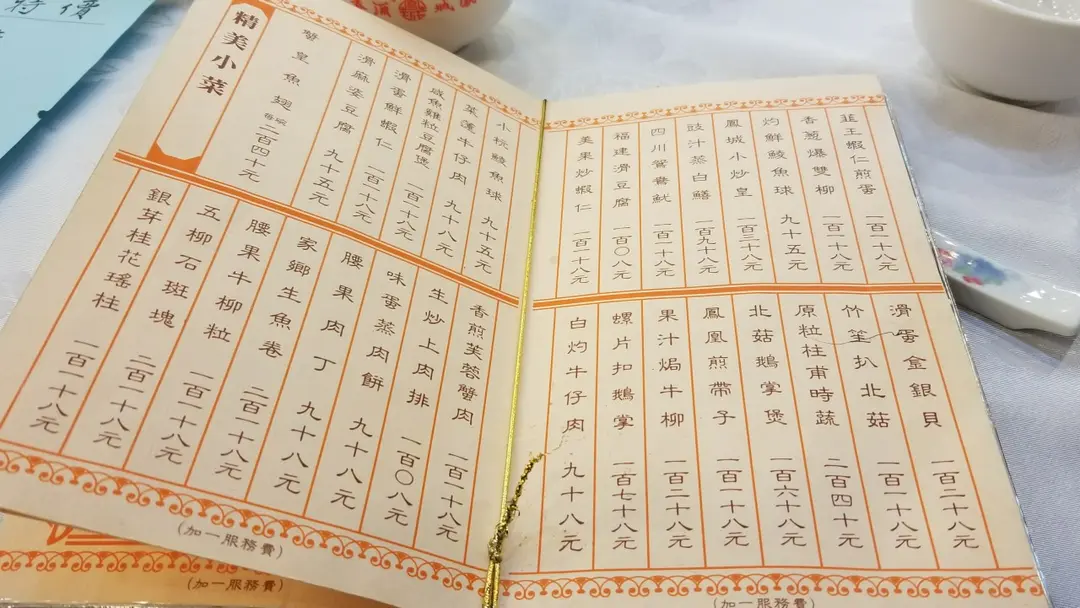 特價
精美小菜
蟹皇魚翅 每碗 二百四十元
滑麻婆豆腐 九十五元
滑蛋鮮蝦仁 一百一十八元
咸魚雞粒豆腐煲 一百一十八元
菜薳牛仔肉 九十八元
小梡鯪魚球 九十五元
銀芽桂花瑤柱 一百一十八元
五柳石斑塊 二百一十八元
腰果牛柳粒 一百一十八元
家鄉生魚卷 二百一十八元
腰果肉丁 九十八元
味蛋蒸肉餅 九十八元
生炒上肉排 一百〇八元
香煎芙蓉蟹肉 一百一十八元
(加一服務費)
(加一服務費)
美果炒蝦仁 一百一十八元
福建滑豆腐 一百〇八元
四川鴛鴦魷 一百一十八元
豉汁蒸白鱔 一百九十八元
鳳城小炒皇 一百三十八元
灼鮮鯪魚球 九十五元
香葱爆雙柳 一百一十八元
韮王蝦仁煎蛋 一百一十八元
白灼牛仔肉 九十八元
螺片扣鵝掌 一百七十八元
果汁焗牛柳 一百二十八元
鳳凰煎帶子 一百一十八元
北菇鵝掌煲 一百六十八元
原粒柱甫時蔬 二百四十元
竹笙扒北菇 一百一十八元
滑蛋金銀貝 一百二十八元
(加一服務費)